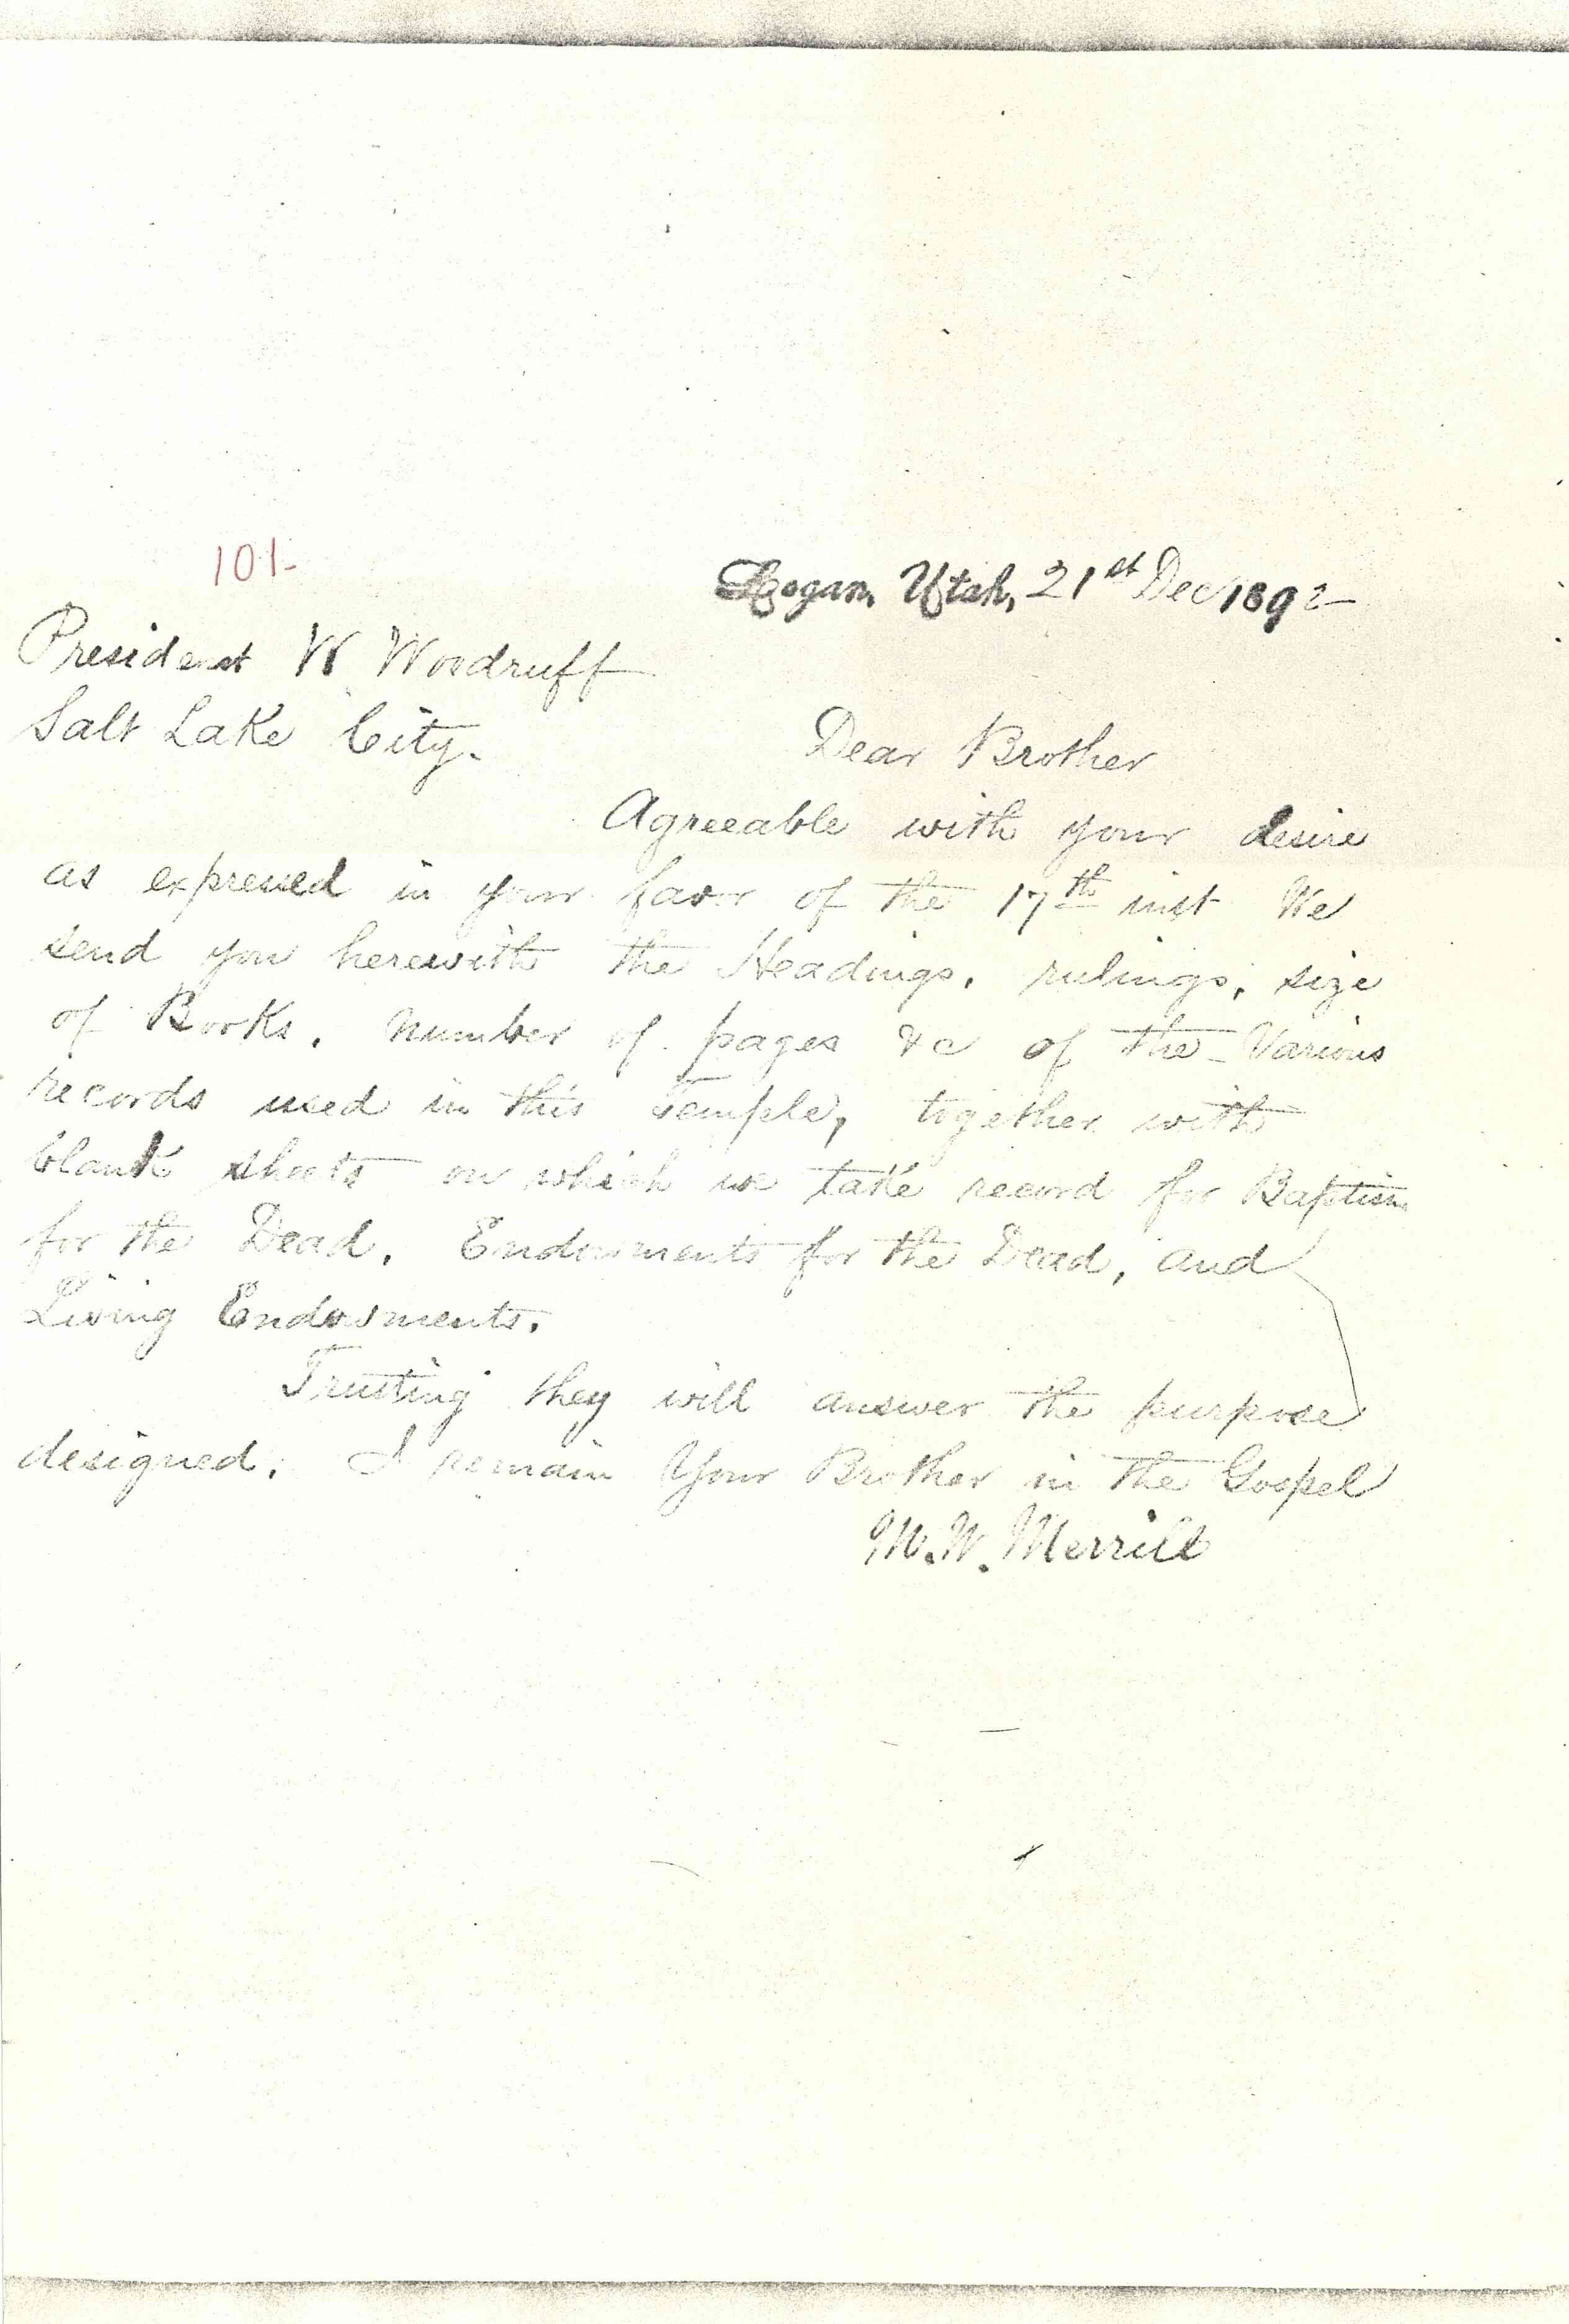 101-
Logan, Utah, 21st Dec 1892
President W Woodruff
Salt Lake City.
Dear Brother
Agreeable with your desire
as expressed in your favor of the 17th inst We
send you herewith the Headings, rulings, size
of Books, number of pages &c of the Various
records used in this Temple, together with
blank sheets on which we take record for Baptism
for the Dead, Endowments for the Dead, and
Living Endowments.
Trusting they will answer the purpose
designed. I remain Your Brother in the Gospel
M. W. Merrill